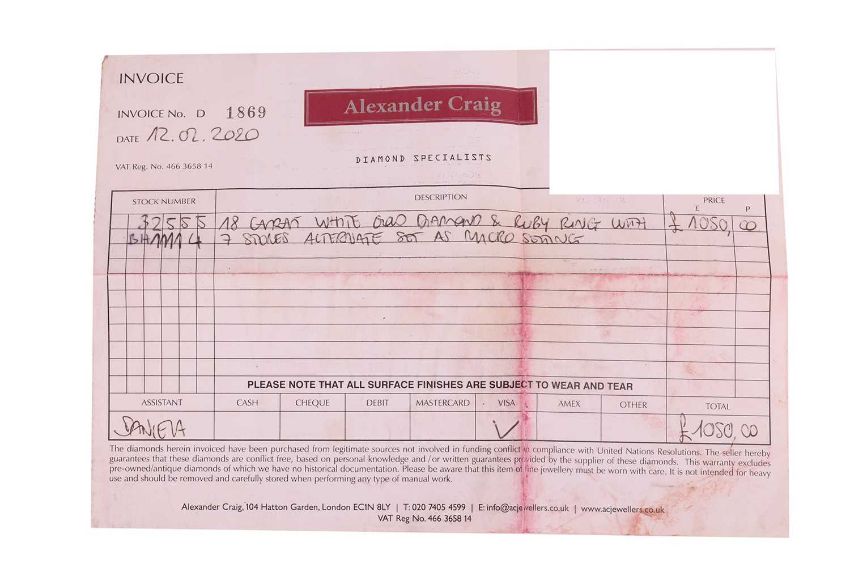 INVOICE
INVOICE No. D 1869
Alexander Craig
DATE 12.02.2020
VAT Reg. No. 466 3658 14
DIAMOND SPECIALISTS
STOCK NUMBER DESCRIPTION PRICE
£ P
32555 18 CARAT WHITE GOLD DIAMOND & RUBY RING WITH £1050,00
BH1114 7 STONES ALTERNATE SET AS MICRO SETTING
PLEASE NOTE THAT ALL SURFACE FINISHES ARE SUBJECT TO WEAR AND TEAR
ASSISTANT CASH CHEQUE DEBIT MASTERCARD VISA AMEX OTHER TOTAL
DANIELA ✓ £1050,00
The diamonds herein invoiced have been purchased from legitimate sources not involved in funding conflict in compliance with United Nations Resolutions. The seller hereby
guarantees that these diamonds are conflict free, based on personal knowledge and /or written guarantees provided by the supplier of these diamonds. This warranty excludes
pre-owned/antique diamonds of which we have no historical documentation. Please be aware that this item of fine jewellery must be worn with care. It is not intended for heavy
use and should be removed and carefully stored when performing any type of manual work.
Alexander Craig, 104 Hatton Garden, London EC1N 8LY | T: 020 7405 4599 | E: info@acjewellers.co.uk | www.acjewellers.co.uk
VAT Reg No. 466 3658 14